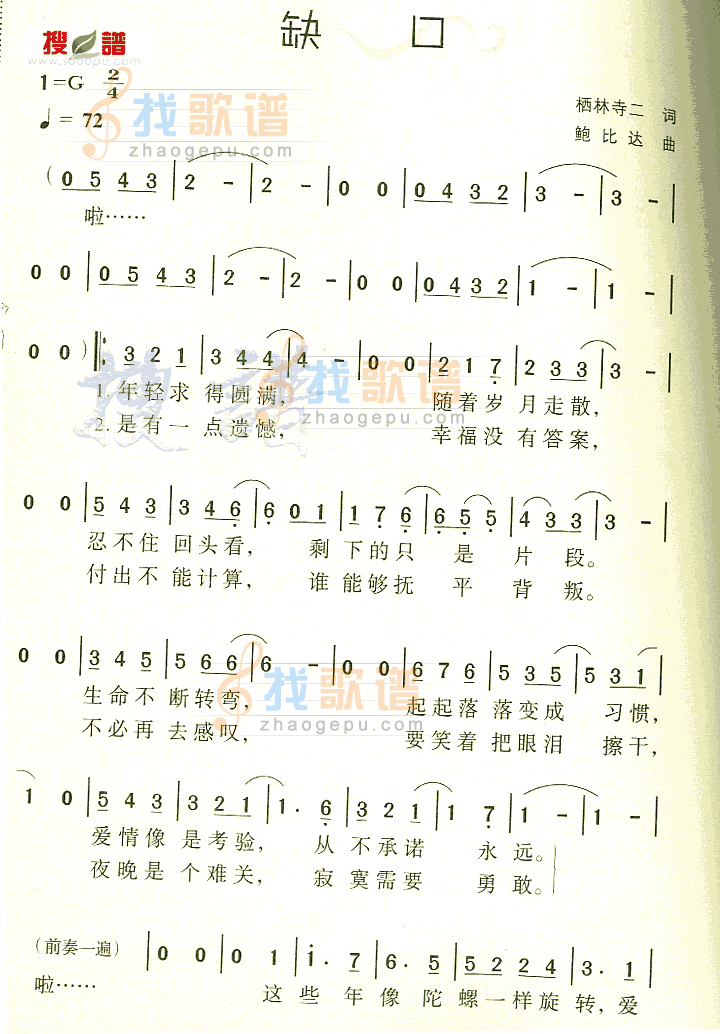 缺 口
搜谱
www.sooopu.com
1=G 2/4
♩= 72
找歌谱
zhaogepu.com
栖林寺二 词
鲍比达 曲
( 0 5 4 3 | 2 - | 2 - | 0 0 | 0 4 3 2 | 3 - | 3 - |
啦……
0 0 | 0 5 4 3 | 2 - | 2 - | 0 0 | 0 4 3 2 | 1 - | 1 - |
0 0 ) ‖: 3 2 1 | 3 4 4 | 4 - | 0 0 | 2 1 7 | 2 3 3 | 3 - |
1. 年轻求 得圆满, 随着岁 月走散,
2. 是有一 点遗憾, 幸福没 有答案,
找歌谱
zhaogepu.com
搜谱
0 0 | 5 4 3 | 3 4 6 | 6 0 1 | 1 7 6 | 6 5 5 | 4 3 3 | 3 - |
忍不住 回头看, 剩 下的只 是 片 段。
付出不 能计算, 谁 能够抚 平 背 叛。
0 0 | 3 4 5 | 5 6 6 | 6 - | 0 0 | 6 7 6 | 5 3 5 | 5 3 1 |
生命不 断转弯, 起起落 落变成 习惯,
不必再 去感叹, 要笑着 把眼泪 擦干,
找歌谱
zhaogepu.com
1 0 | 5 4 3 | 3 2 1 | 1· 6 | 3 2 1 | 1 7 | 1 - | 1 - |
爱情像 是考验, 从 不承诺 永远。
夜晚是 个难关, 寂 寞需要 勇敢。
(前奏一遍) | 0 0 | 0 1 | 1· 7 | 6· 5 | 5 2 2 4 | 3· 1 |
啦…… 这 些 年 像 陀 螺 一 样 旋 转, 爱